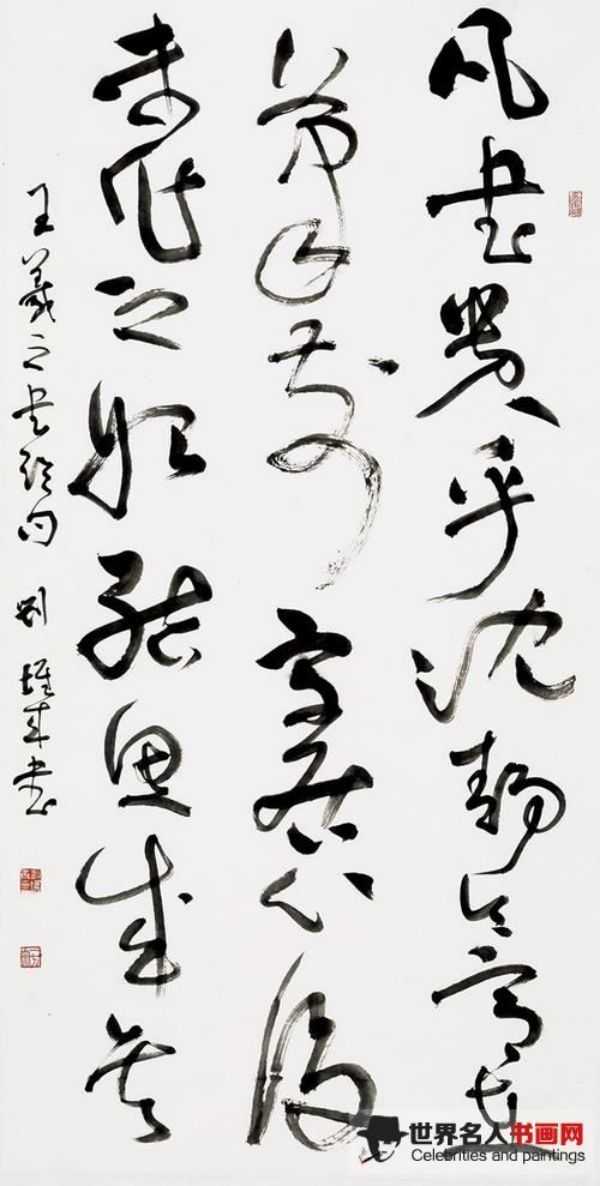 凡書貴乎沈靜令意在
筆前字居心後
未作之始結思成矣
王羲之書論句 書
世界名人书画网
Celebrities and paintings